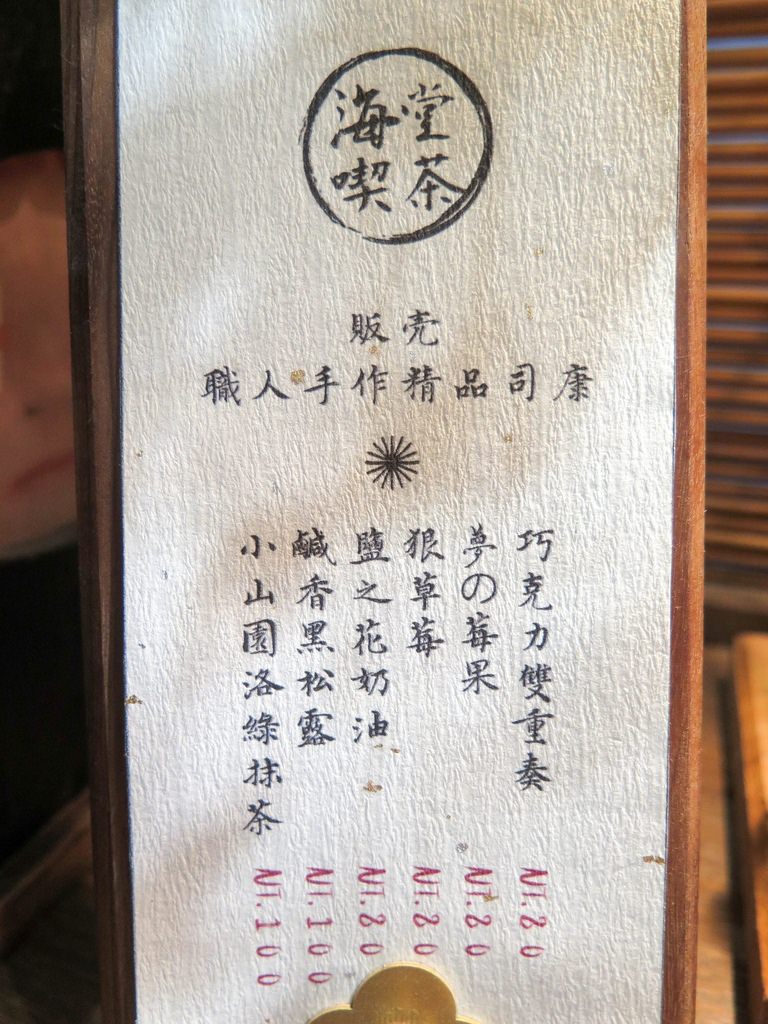 海堂
喫茶
販売
職人手作精品司康
巧克力雙重奏 NT.80
夢の莓果 NT.80
狠草莓 NT.80
鹽之花奶油 NT.80
鹹香黑松露 NT.100
小山園洛綠抹茶 NT.100